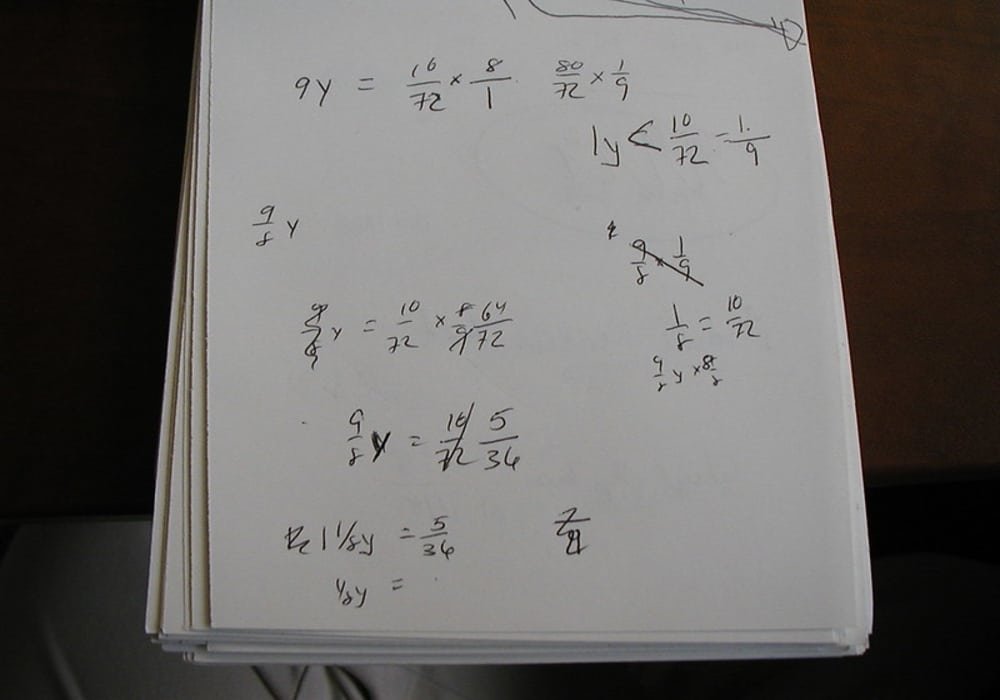 9y = 10/72 × 8/1 80/72 × 1/9
1y < 10/72 = 1/9
9/8 y
9/8 × 1/9
y = 10/72 × 8/9 64/72
1/8 = 10/72
9/8 y × 8/8
9/8 y = 10/72 5/36
1 1/8y = 5/36
1/8y =